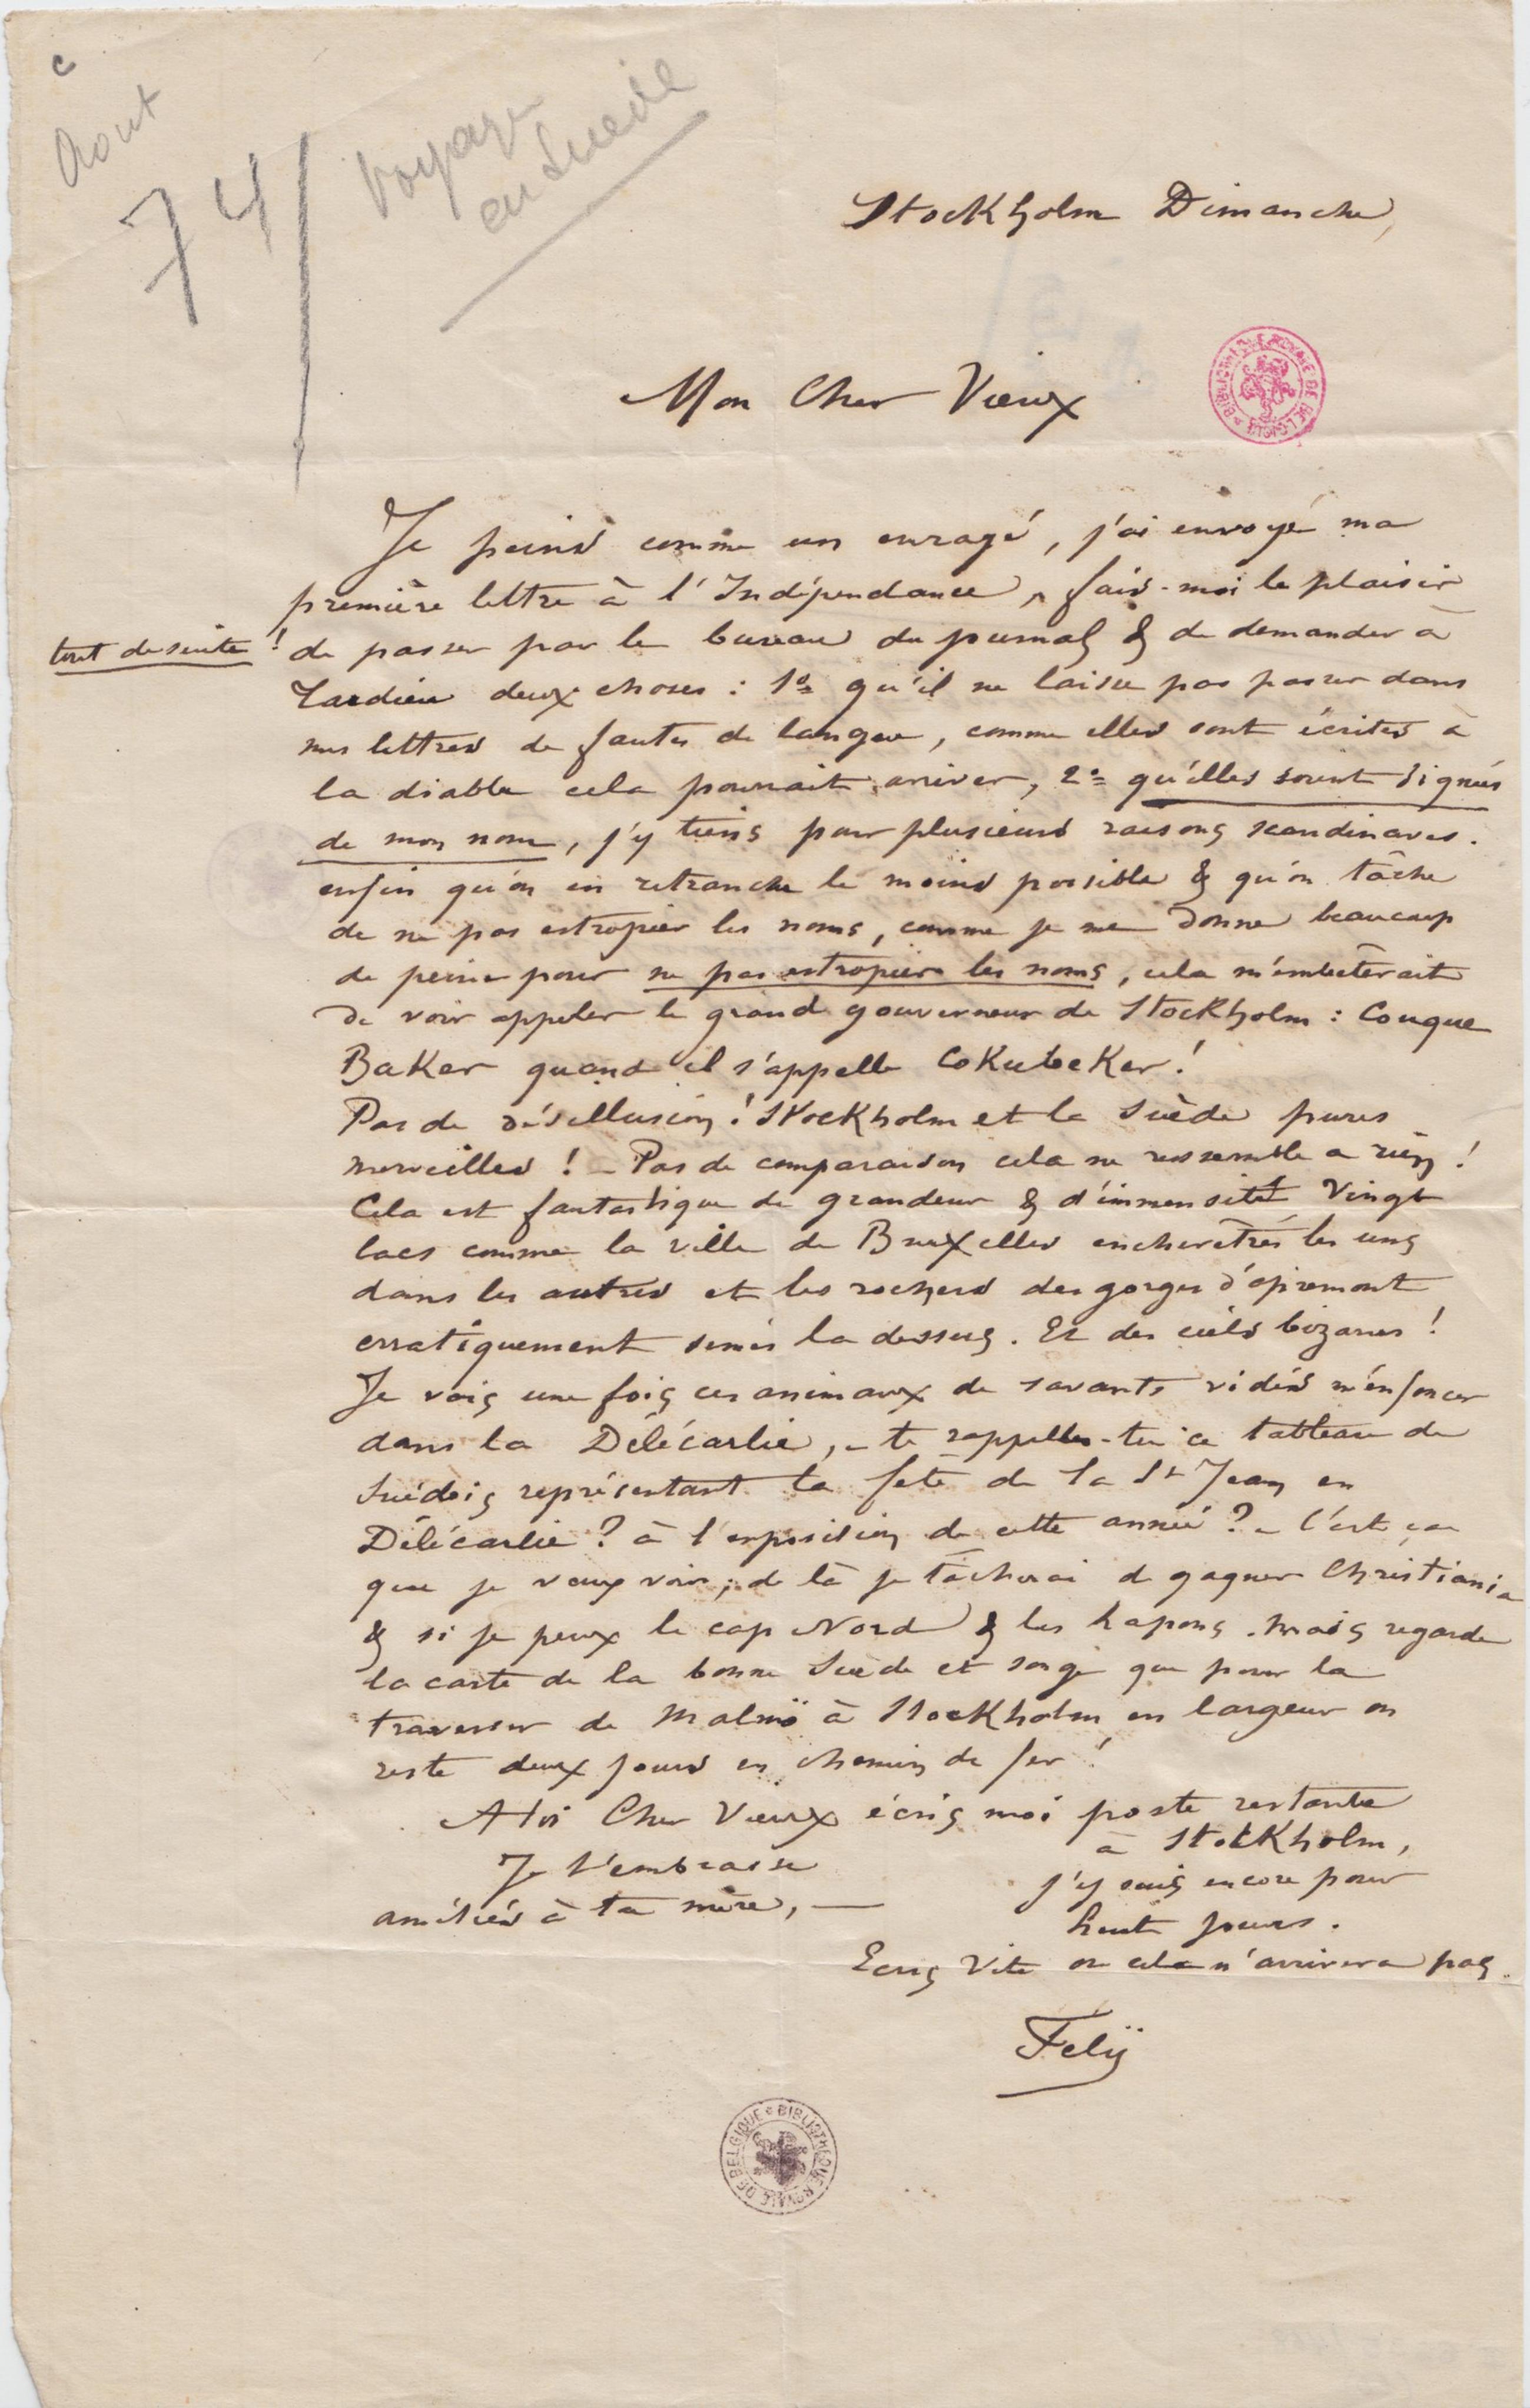 c
Aout
74
Voyage
en Suède
Stockholm Dimanche,
BIBLIOTHEQUE ROYALE DE BELGIQUE
Mon Cher Vieux
Je peins comme un enragé, j'ai envoyé ma
première lettre à l'Indépendance, fais-moi le plaisir
tout de suite !
de passer par le bureau du journal & de demander à
Tardieu deux choses : 1° qu'il ne laisse pas passer dans
mes lettres de fautes de langue, comme elles sont écrites à
la diable cela pourrait arriver, 2° qu'elles soient signées
de mon nom, j'y tiens pour plusieurs raisons scandinaves.
enfin qu'on en retranche le moins possible & qu'on tâche
de ne pas estropier les noms, comme je me donne beaucoup
de peine pour ne pas estropier les noms, cela m'embêterait
de voir appeler le grand gouverneur de Stockholm : Couque
Baker quand il s'appelle CoKubeKer !
Pas de désillusion ! Stockholm et la Suède pures
merveilles ! – Pas de comparaison cela ne ressemble a rien !
Cela est fantastique de grandeur & d'immensité Vingt
lacs comme la ville de Bruxelles enchevêtrés les uns
dans les autres et les rochers des gorges d'apremont
erratiquement semés la dessus. Et des ciels bizarres !
Je vais une fois ces animaux de savants vidés m'enfoncer
dans la Délécarlie, – te rappelles-tu ce tableau de
Suédois représentant la fete de la St Jean en
Délécarlie ? à l'exposition de cette année ? – C'est ça
que je veux voir ; de là je tâcherai de gagner Christiania
& si je peux le cap Nord & les Lapons. Mais regarde
la carte de la bonne Suède et songe que pour la
traverser de Malmö à Stockholm en largeur on
reste deux jours en chemin de fer !
A toi Cher Vieux écris moi poste restante
à Stockholm,
Je t'embrasse
j'y suis encore pour
amitiés à ta mère, —
huit jours.
Ecris Vite ou cela n'arrivera pas.
Fely
BIBLIOTHEQUE ROYALE DE BELGIQUE